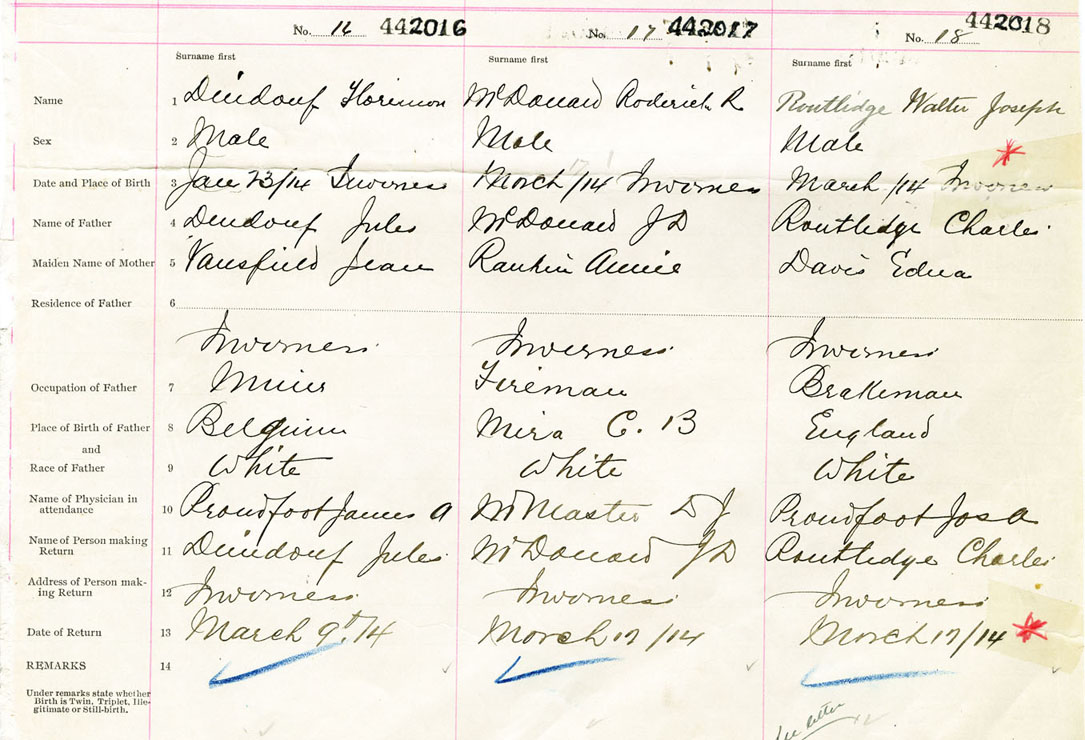 No. 16 442016 No. 17 442017 No. 18 442018
Surname first Surname first Surname first
Name 1 Dindouf Florimon McDonald Roderick R Routlidge Walter Joseph
Sex 2 Male Male Male
Date and Place of Birth 3 Jan 23/14 Inverness March /14 Inverness March /14 Inverness
Name of Father 4 Dindouf Jules McDonald J D Routlidge Charles
Maiden Name of Mother 5 Vansfield Jean Rankin Annie Davis Edna
Residence of Father 6
Inverness Inverness Inverness
Occupation of Father 7 Miner Fireman Brakeman
Place of Birth of Father 8 Belgium Mira C. B England
and
Race of Father 9 White White White
Name of Physician in
attendance 10 Proudfoot James A McMaster D J Proudfoot Jas A
Name of Person making
Return 11 Dindouf Jules McDonald J D Routlidge Charles
Address of Person mak-
ing Return 12 Inverness Inverness Inverness
Date of Return 13 March 9th/14 March 17/14 March 17/14
REMARKS 14
Under remarks state whether
Birth is Twin, Triplet, Ille-
gitimate or Still-birth.
see letter